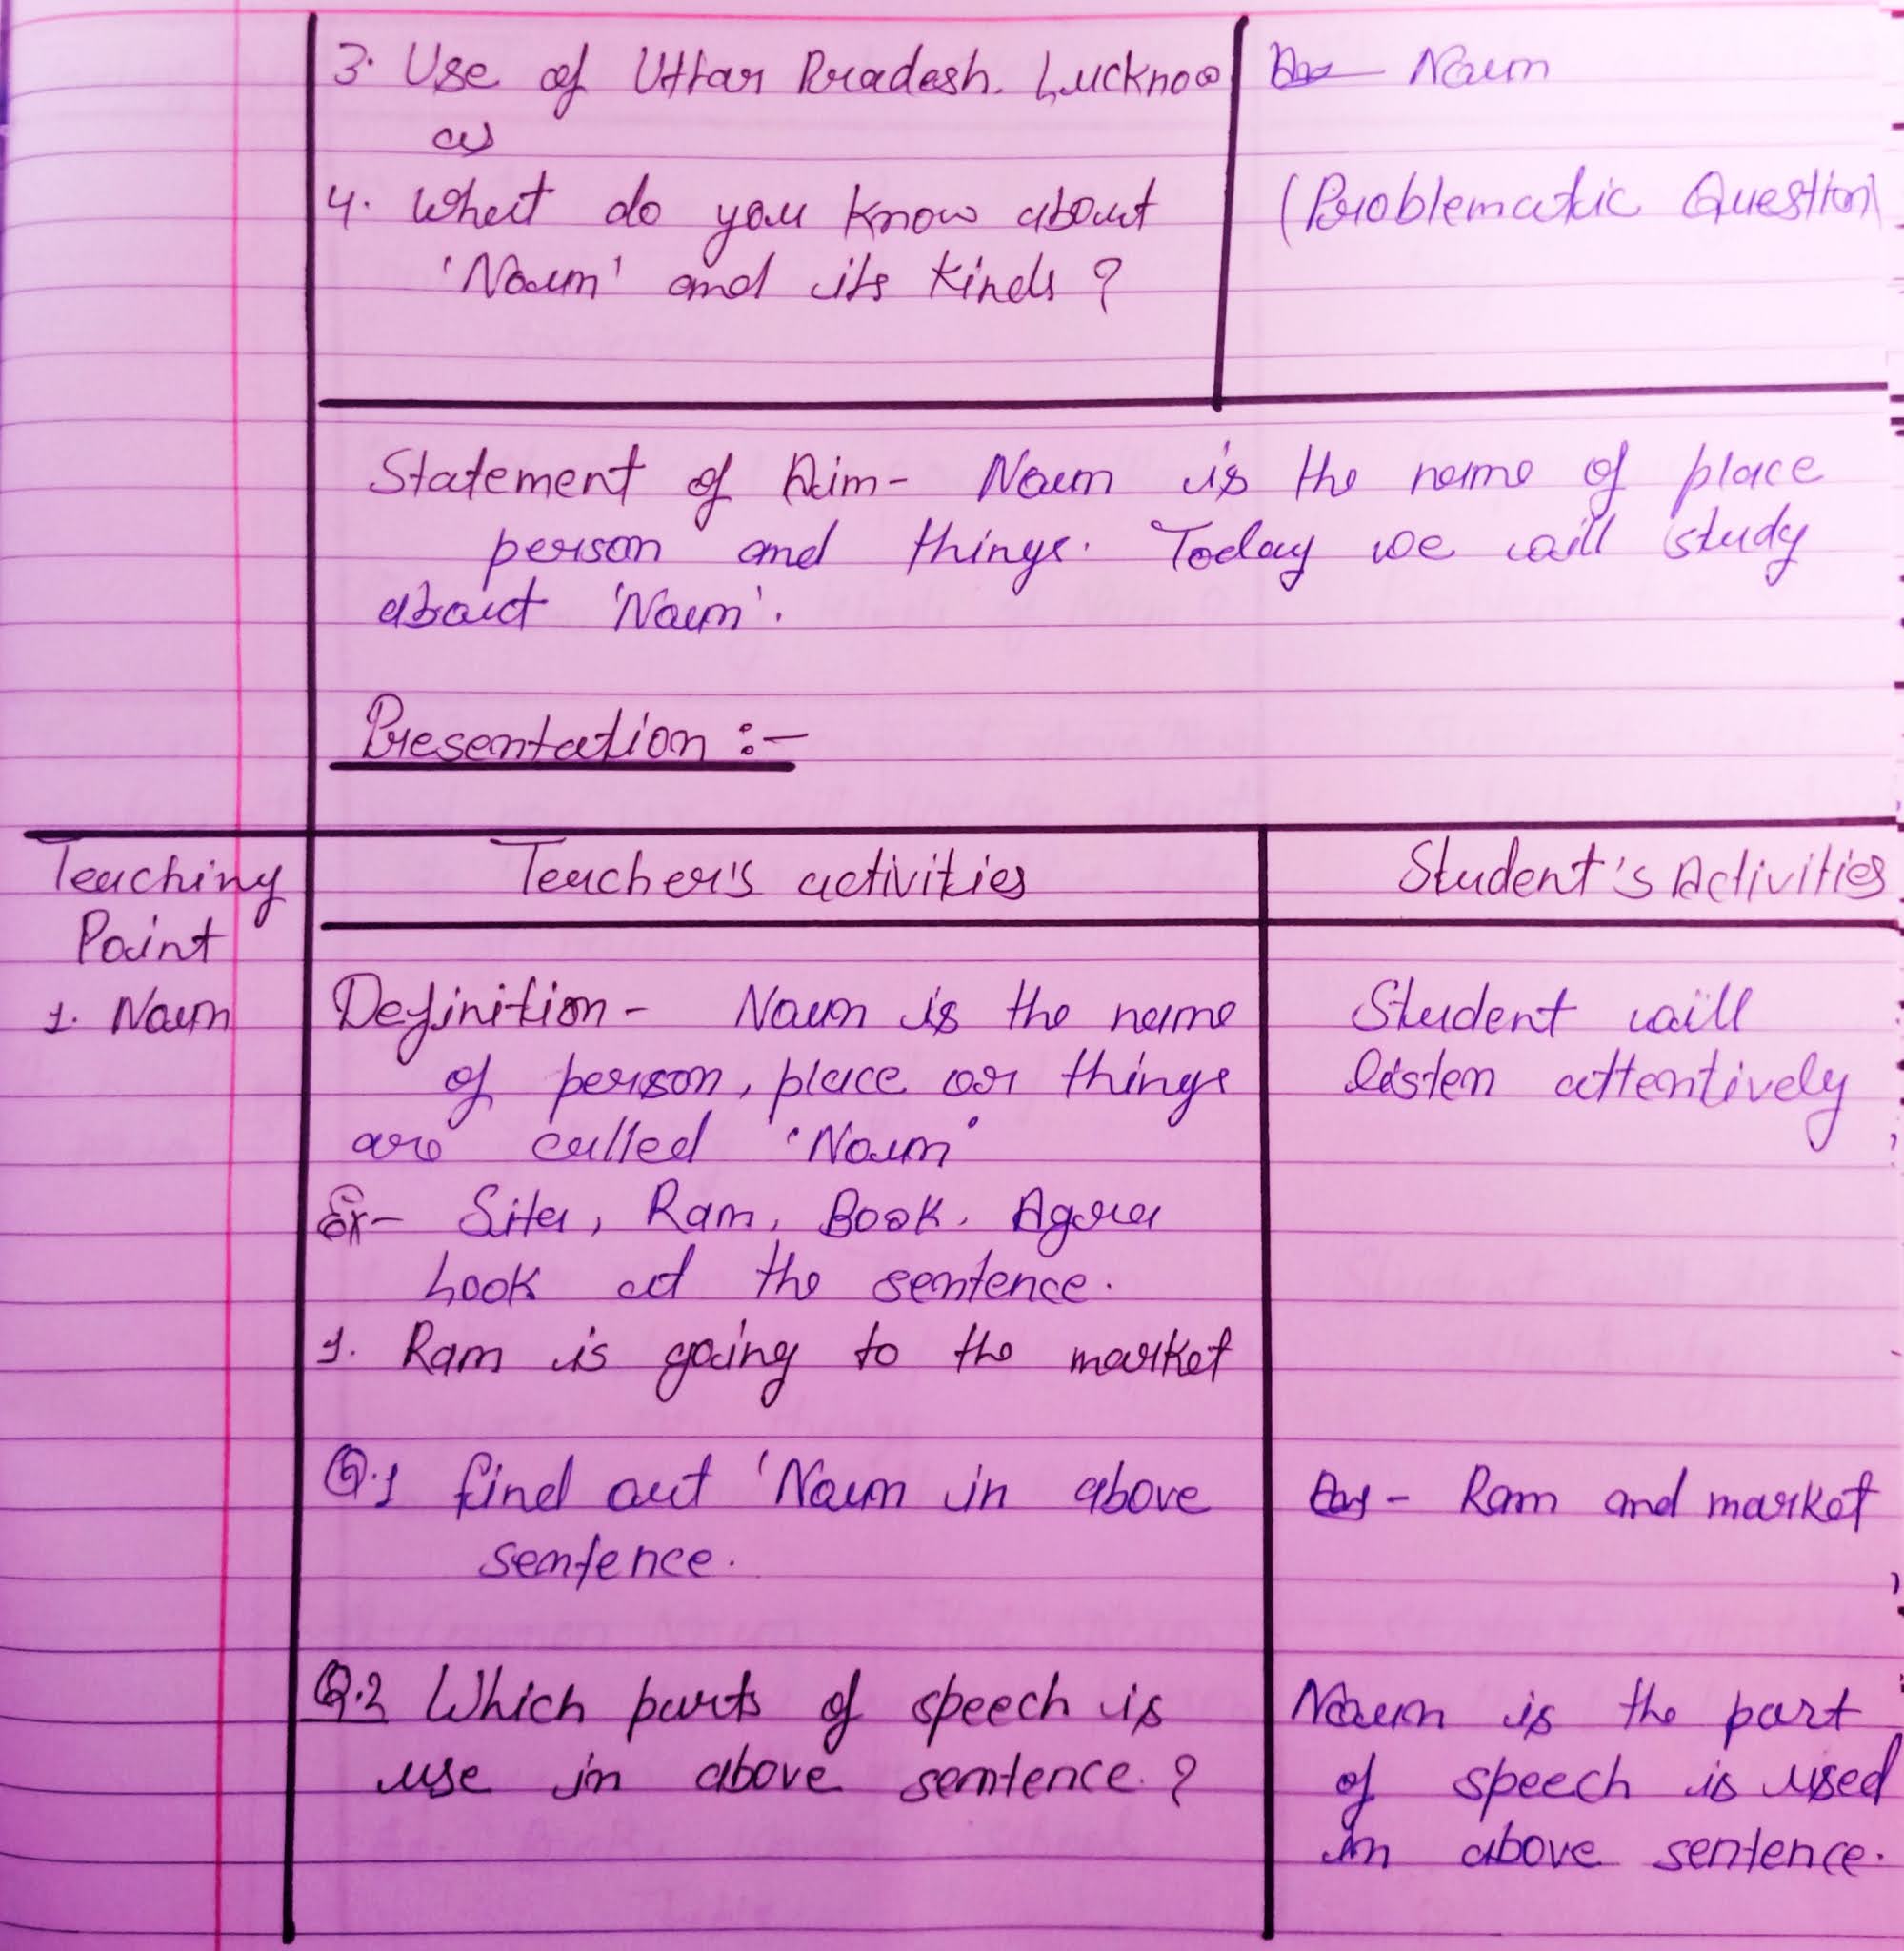 3. Use of Uttar Pradesh. Lucknoo
as
Noun
4. What do you know about
'Noun' and its kinds ?
(Problematic Question)
Statement of Aim - Noun is the name of place
person and things. Today we will study
about 'Noun'.
Presentation :-
Teaching
Point
Teacher's activities
Student's Activities
1. Noun
Definition - Noun is the name
of person, place or things
are called 'Noun'
Ex- Sita, Ram, Book, Agra
Look at the sentence.
1. Ram is going to the market
Student will
listen attentively
Q.1 find out 'Noun in above
sentence.
Ans - Ram and market
Q.2 Which parts of speech is
use in above sentence. ?
Noun is the part
of speech is used
in above sentence.